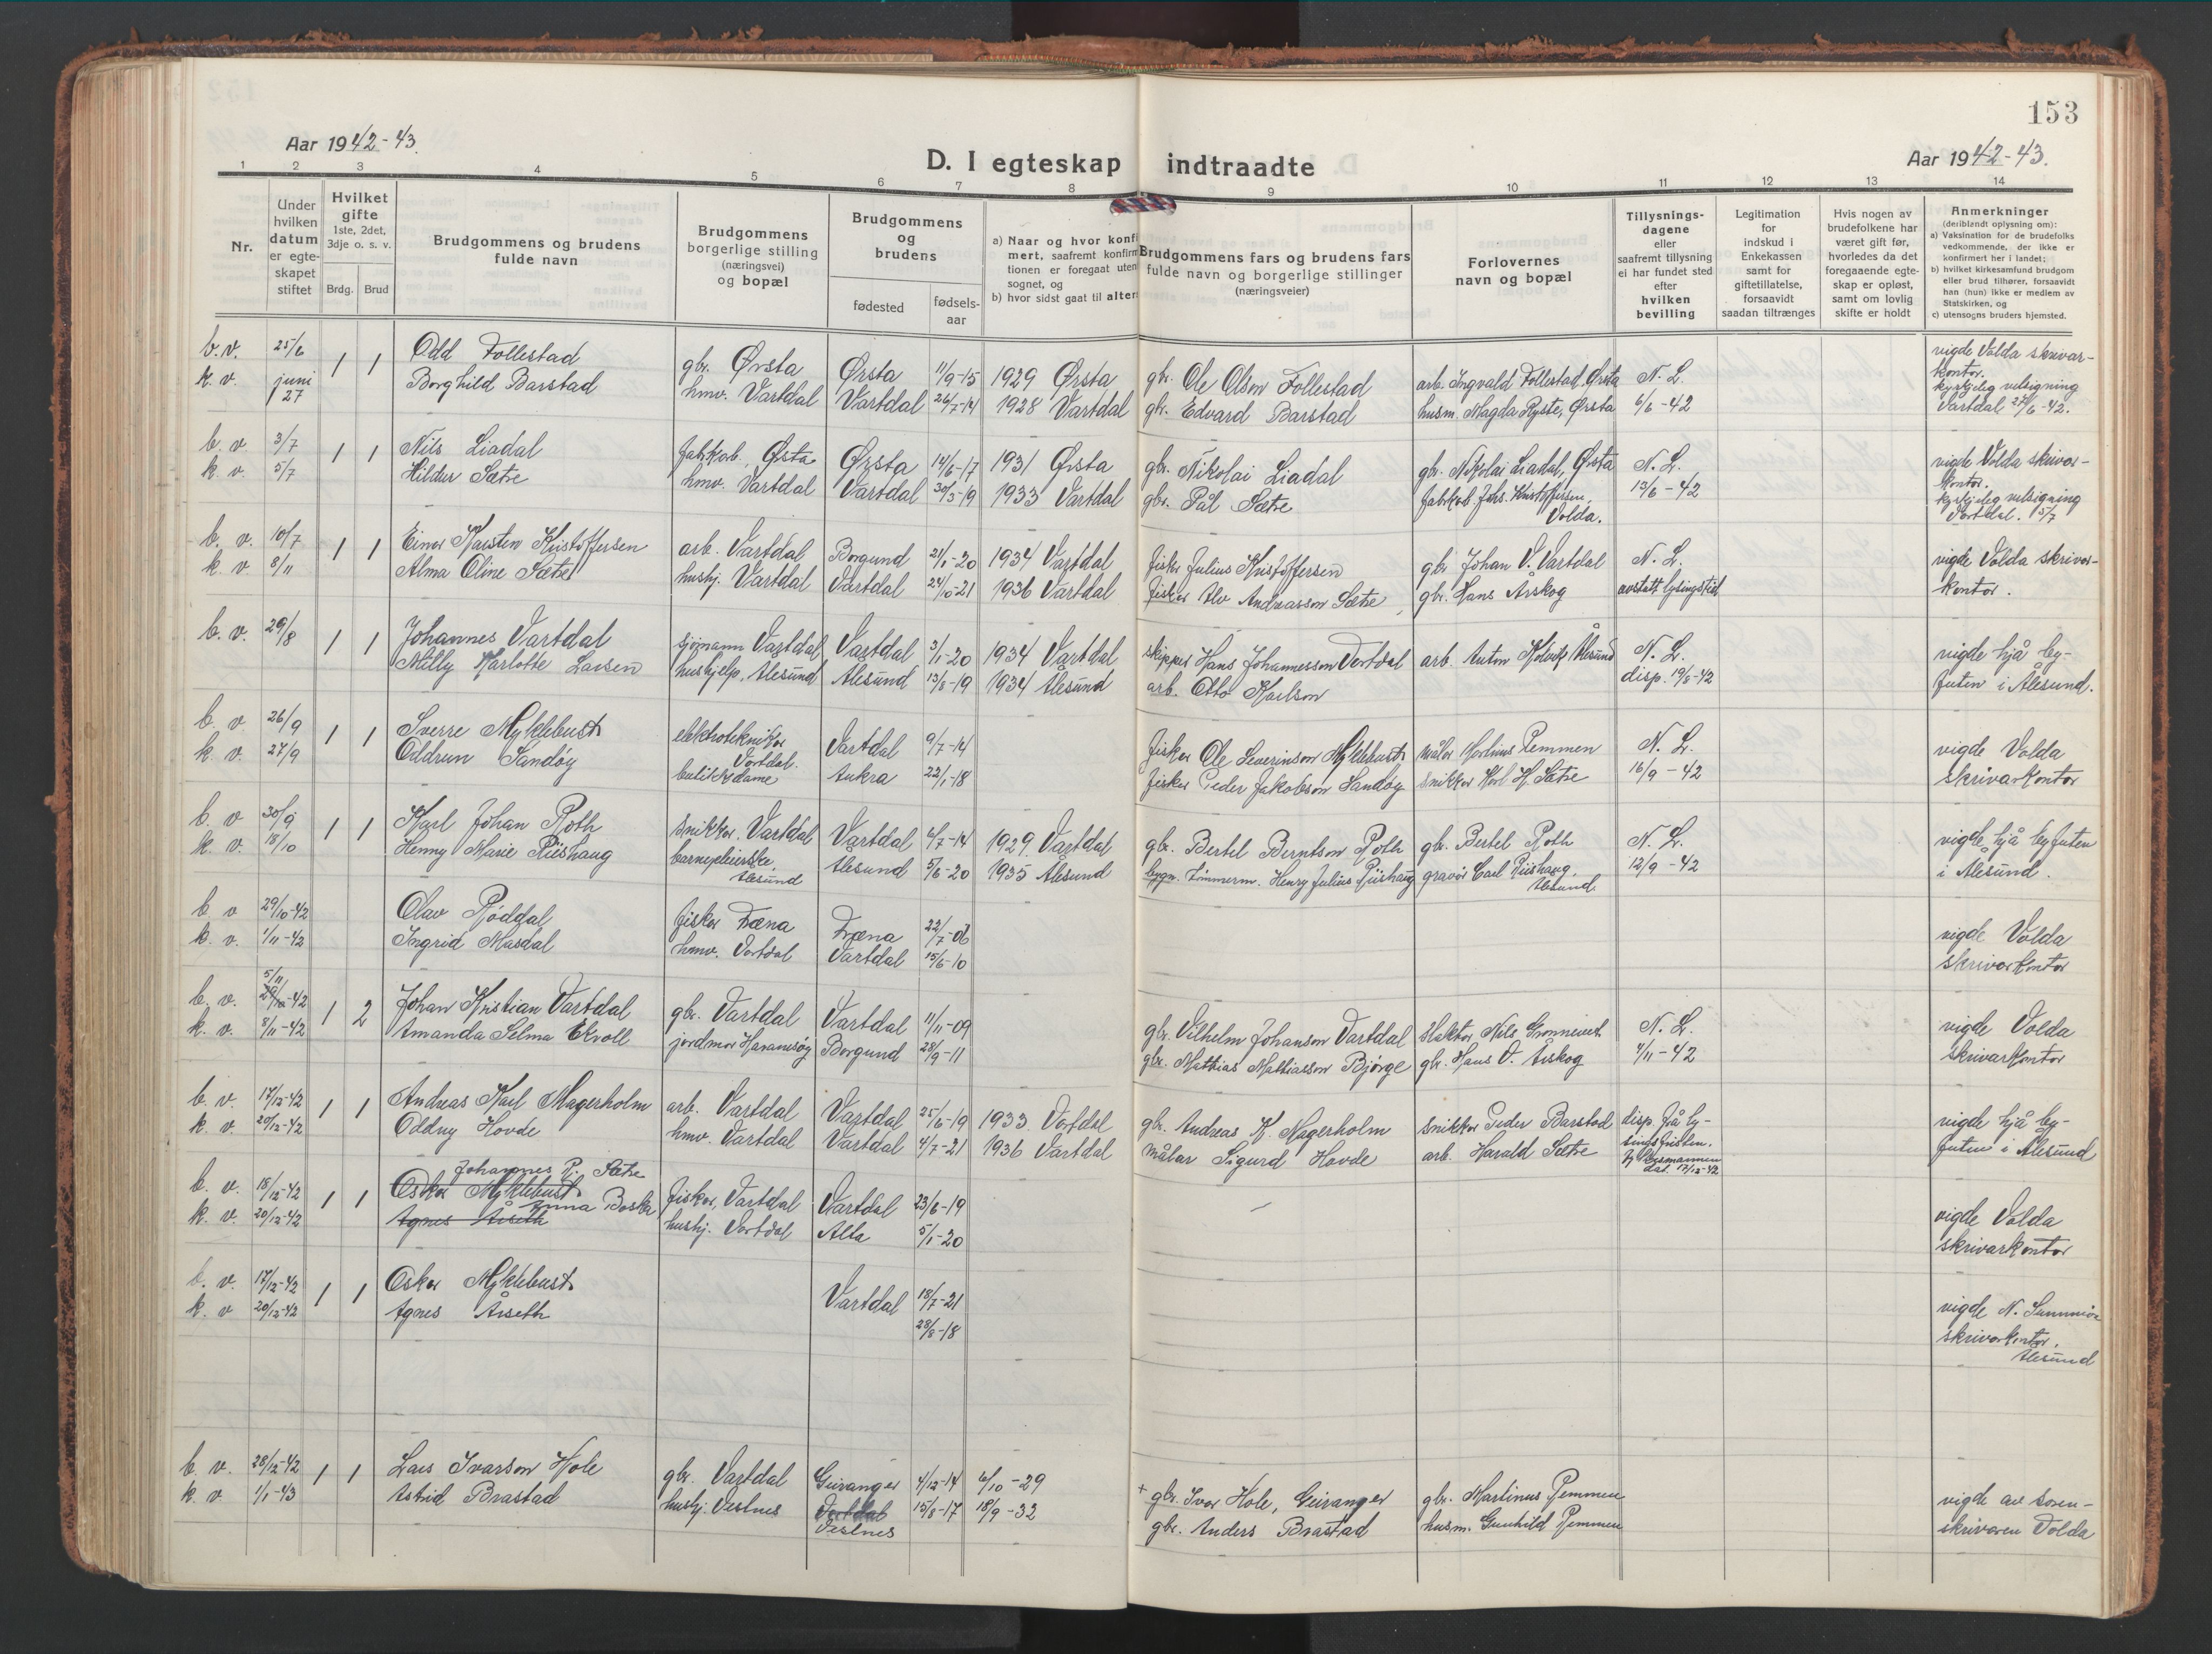 153
Aar 1942-43.
Aar 1942-43.
D. I egteskap indtraadte
1 2 3 4 5 6 7 8 9 10 11 12 13 14
Nr.
Under hvilken datum er egteskapet stiftet
Hvilket gifte
1ste, 2det, 3dje o. s. v.
Brdg. Brud
Brudgommens og brudens fulde navn
Brudgommens borgerlige stilling (næringsvei) og bopæl
Brudgommens og brudens
fødested
fødselsaar
a) Naar og hvor konfi
mert, saafremt konfirm
tionen er foregaat uten
sognet, og
b) hvor sidst gaat til alter
Brudgommens fars og brudens fars
fulde navn og borgerlige stillinger
(næringsveier)
Forlovernes navn og bopæl
Tillysningsdagene eller saafremt tillysning ei har fundet sted efter hvilken bevilling
Legitimation for indskud i Enkekassen samt for giftetillatelse, forsaavidt saadan tiltrænges
Hvis nogen av brudefolkene har været gift før, hvorledes da det foregaaende egteskap er opløst, samt om lovlig skifte er holdt
Anmerkninger
(deriblandt oplysning om):
a) Vaksination for de brudefolks vedkommende, der ikke er konfirmert her i landet;
b) hvilket kirkesamfund brudgom eller brud tilhører, forsaavidt han (hun) ikke er medlem av Statskirken, og
c) utensogns bruders hjemsted.
b. v. 25/6 1 1 Odd Follestad gbr. Ørsta Ørsta 11/9-15 1929 Ørsta gbr. Ole Olson Follestad arb. Ingvald Follestad, Ørsta N. L. vigde Volda skrivar-
kontor.
k. v. juni 27 Borghild Barstad hmv. Vartdal Vartdal 26/7-14 1928 Vartdal gbr. Edvard Barstad husm. Magda Ryste, Ørsta 6/6-42 kyrkjeleg velsigning
Vartdal 27/6-42.
b. v. 3/7 1 1 Nils Liadal fabrkarb. Ørsta Ørsta 14/6-17 1931 Ørsta gbr. Nikolai Liadal gbr. Nikolai Liadal, Ørsta N. L. vigde Volda skrivar-
kontor.
k. v. 5/7 Hildur Sætre hmv. Vartdal Vartdal 30/3-19 1933 Vartdal gbr. Pål Sætre fabrkarb. Johs. Kristoffersen, Volda. 13/6-42 kyrkjeleg velsigning
Vartdal. 5/7
b. v. 10/7 1 1 Einar Karsten Kristoffersen arb. Vartdal Borgund 21/1-20 1934 Vartdal fiskar Julius Kristoffersen gbr Johan V. Vartdal N. L. vigde Volda skrivar-
k. v. 8/11 Alma Oline Sætre hushj. Vartdal Vartdal 24/10-21 1936 Vartdal fiskar Alv Andreasson Sætre gbr. Hans Årskog avstått lysingstid kontor.
b. v. 29/8 1 1 Johannes Vartdal sjømann Vartdal Vartdal 3/1-20 1934 Vartdal skipper Hans Johannesson Vartdal arb. Anton Ålesund N. L. vigde hjå by-
Milly Karlotte Larsen hushjelp, Ålesund Ålesund 13/8-19 1934 Ålesund arb. Otto Karlson disp. 19/8-42 futen i Ålesund.
b. v. 26/9 1 1 Sverre Myklebust elektroteknikar Vartdal. Vartdal 9/7-14 fiskar Ole Severinson Myklebust målar Martinus Remmen N. L. vigde Volda
k. v. 27/9 Oddrun Sandøy butikkdame Aukra 22/1-18 fiskar Peder Jakobson Sandøy snikkar Karl K. Sætre 16/9-42 skrivarkontor
b. v 30/9 1 1 Karl Johan Roth snikkar. Vartdal Vartdal 6/7-14 1929 Vartdal gbr. Bertel Berntson Roth gbr. Bertel Roth N. L. vigde hjå byfuten
k. v. 18/10 Henny Marie Riishaug barnepleierske Ålesund Ålesund 5/6-20 1935 Ålesund bygn. tømmerm. Henry Julius Riishaug gravør Carl Riishaug. Ålesund. 12/9-42 i Ålesund.
b v 29/10-42 Olav Røddal fiskar Fræna Fræna 22/7-06 vigde Volda
k. v. 1/11-42 Ingrid Masdal hmv. Vartdal Vartdal 15/6-10 skrivarkontor
b. v. 5/11 29/10-42 1 2 Johan Kristian Vartdal gbr. Vartdal Vartdal 11/11-09 gbr. Vilhelm Johanson Vartdal Nils N. L. vigde Volda
k. v. 8/11-42 Amanda Selma Ekroll jordmor Haramsøy Borgund 28/9-11 gbr. Mathias Mathiasson Bjørge gbr. Hans O. Årskog 4/11-42 skrivarkontor
b. v. 17/12-42 1 1 Andreas Karl Magerholm arb. Vartdal Vartdal 25/6-19 1933 Vartdal gbr. Andreas K. Magerholm snikkar Peder Barstad disp. frå ly-
singsfristen. vigde hjå by-
k. v. 20/12-42 Oddny Hovde hmv. Vartdal Vartdal 4/7-21 1936 Vartdal målar Sigurd Hovde arb. Harald Sætre dat. 17/12-42 futen i Ålesund
b. v. 18/12-42 1 1 Johannes R. Sætre Oskar Myklebust fiskar, Vartdal Vartdal 23/6-19 vigde Volda
k. v. 20/12-42 Anna Agnes Årseth hushj. Vartdal Alta 5/1-20 skrivarkontor
b. v. 17/12-42 1 1 Oskar Myklebust Vartdal 18/7-21 vigde N. Sunnmøre
k. v 20/12-42 Agnes Årseth 28/8-18 skrivarkontor. Ålesund
b. v. 28/12-42 1 1 Lars Ivarson Hole gbr. Vartdal Geiranger 4/12-14 6/10-29 + gbr. Ivar Hole, Geiranger gbr. Martinus Remmen vigde av soren-
k. v 1/1-43 Astrid Brastad hushj. Vestnes Vartdal Vestnes 15/8-17 18/9-32 gbr. Anders Brastad husm. Gunhild Remmen skrivaren Volda